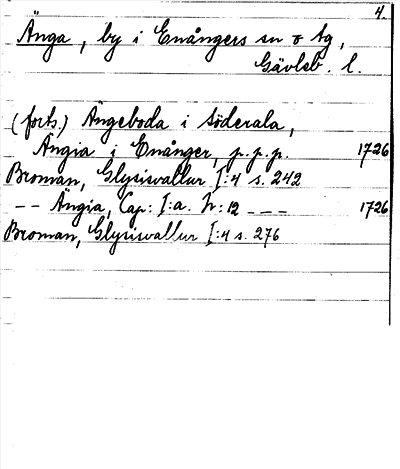 4.
Änga, by i Enångers sn o tg,
Gävleb. l.
(forts.) Ängeboda i Söderala,
Ängia i Enånger, p.p.p. 1726
Broman, Glysisvallur I:4 s. 242
-- Ängia, Cap: I:a. N:12 --- 1726
Broman, Glysisvallur I:4 s. 276